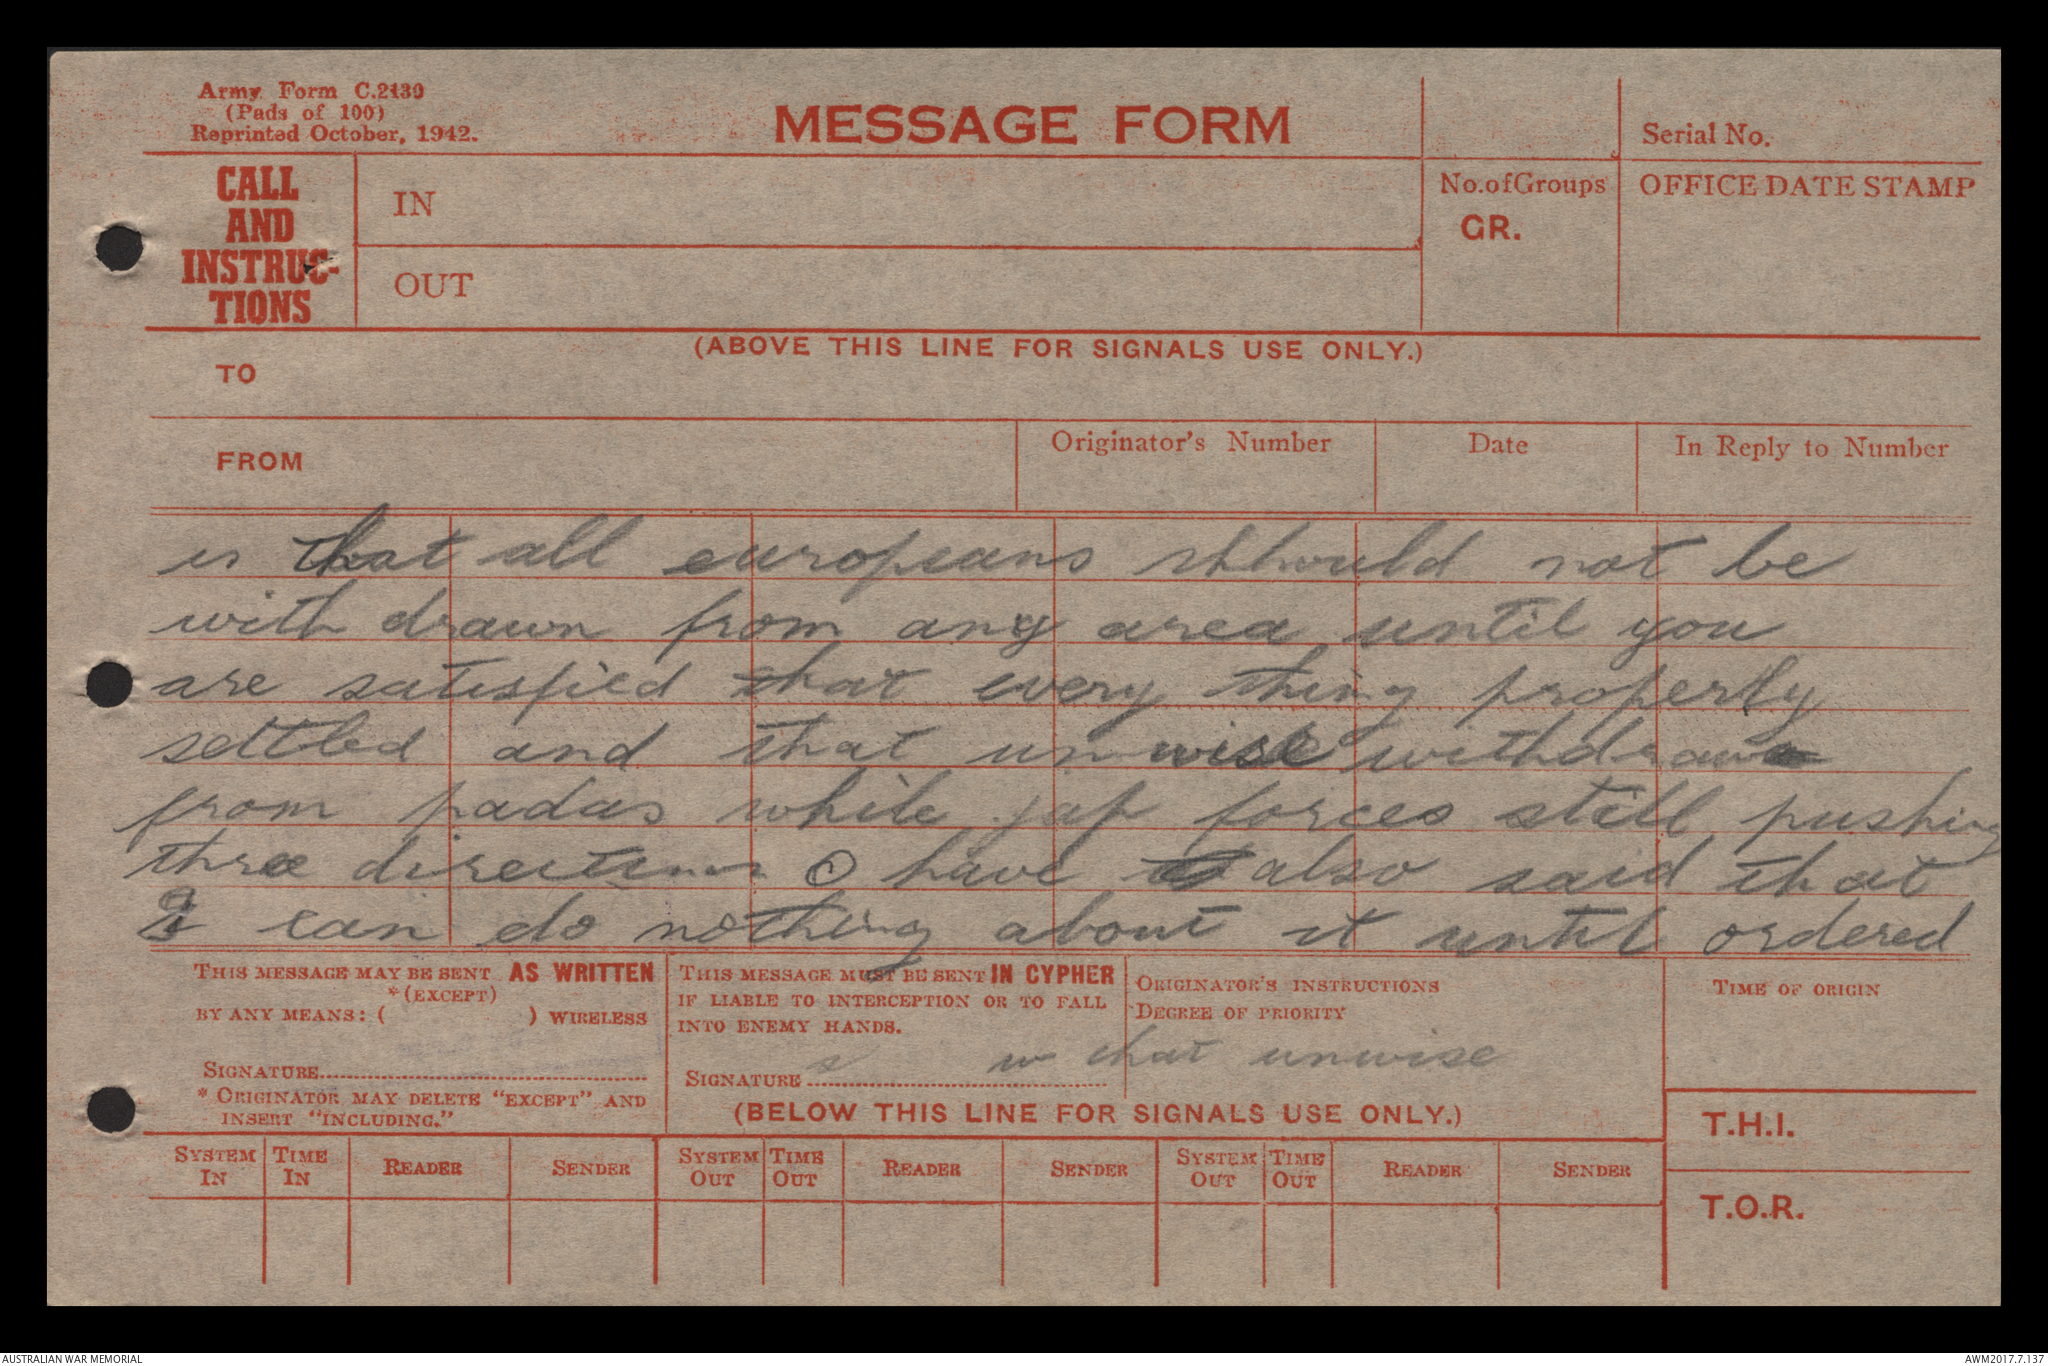 Army Form C.2130
(Pads of 100)
Reprinted October, 1942.
MESSAGE FORM
Serial No.
CALL
AND
INSTRUC-
TIONS
IN
OUT
No.ofGroups
GR.
OFFICE DATE STAMP
(ABOVE THIS LINE FOR SIGNALS USE ONLY.)
TO
FROM
Originator's Number
Date
In Reply to Number
is that all europeans shhould not be
with drawn from any area until you
are satisfied that every thing properly
settled and that unwise withdraw
from padas while jap forces still pushing
three directions O have also said that
I can do nothing about it until ordered
THIS MESSAGE MAY BE SENT AS WRITTEN
*(EXCEPT)
BY ANY MEANS: ( ) WIRELESS
SIGNATURE
* ORIGINATOR MAY DELETE "EXCEPT" AND
INSERT "INCLUDING."
THIS MESSAGE MUST BE SENT IN CYPHER
IF LIABLE TO INTERCEPTION OR TO FALL
INTO ENEMY HANDS.
SIGNATURE
ORIGINATOR'S INSTRUCTIONS
DEGREE OF PRIORITY
s w that unwise
TIME OF ORIGIN
(BELOW THIS LINE FOR SIGNALS USE ONLY.)
T.H.I.
T.O.R.
SYSTEM IN
TIME IN
READER
SENDER
SYSTEM OUT
TIME OUT
READER
SENDER
SYSTEM OUT
TIME OUT
READER
SENDER
AUSTRALIAN WAR MEMORIAL
AWM2017.7.137